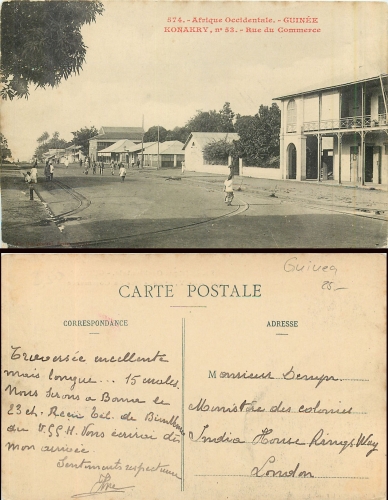 574. - Afrique Occidentale. - GUINÉE
KONAKRY, nº 53. - Rue du Commerce
Guinea
25-
CARTE POSTALE
CORRESPONDANCE
ADRESSE
Traversée excellente
mais longue... 15 nœuds.
Nous serons a Boma le
23 ct. Reçu tél. de
du V.G.G.H. Vous écrirai dès
mon arrivée
Sentiments respectueux
Monsieur
Ministère des colonies
India House Kings Way
London